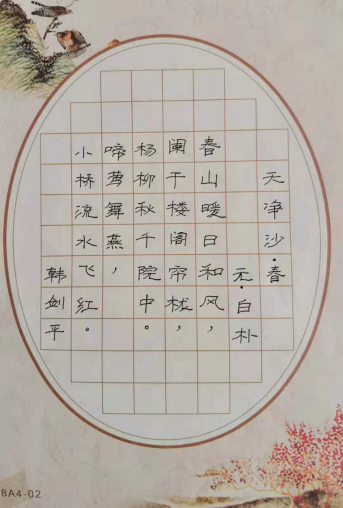 天净沙·春
元·白朴
春山暖日和风，
阑干楼阁帘栊，
杨柳秋千院中。
啼莺舞燕，
小桥流水飞红。
韩剑平
8A4-02